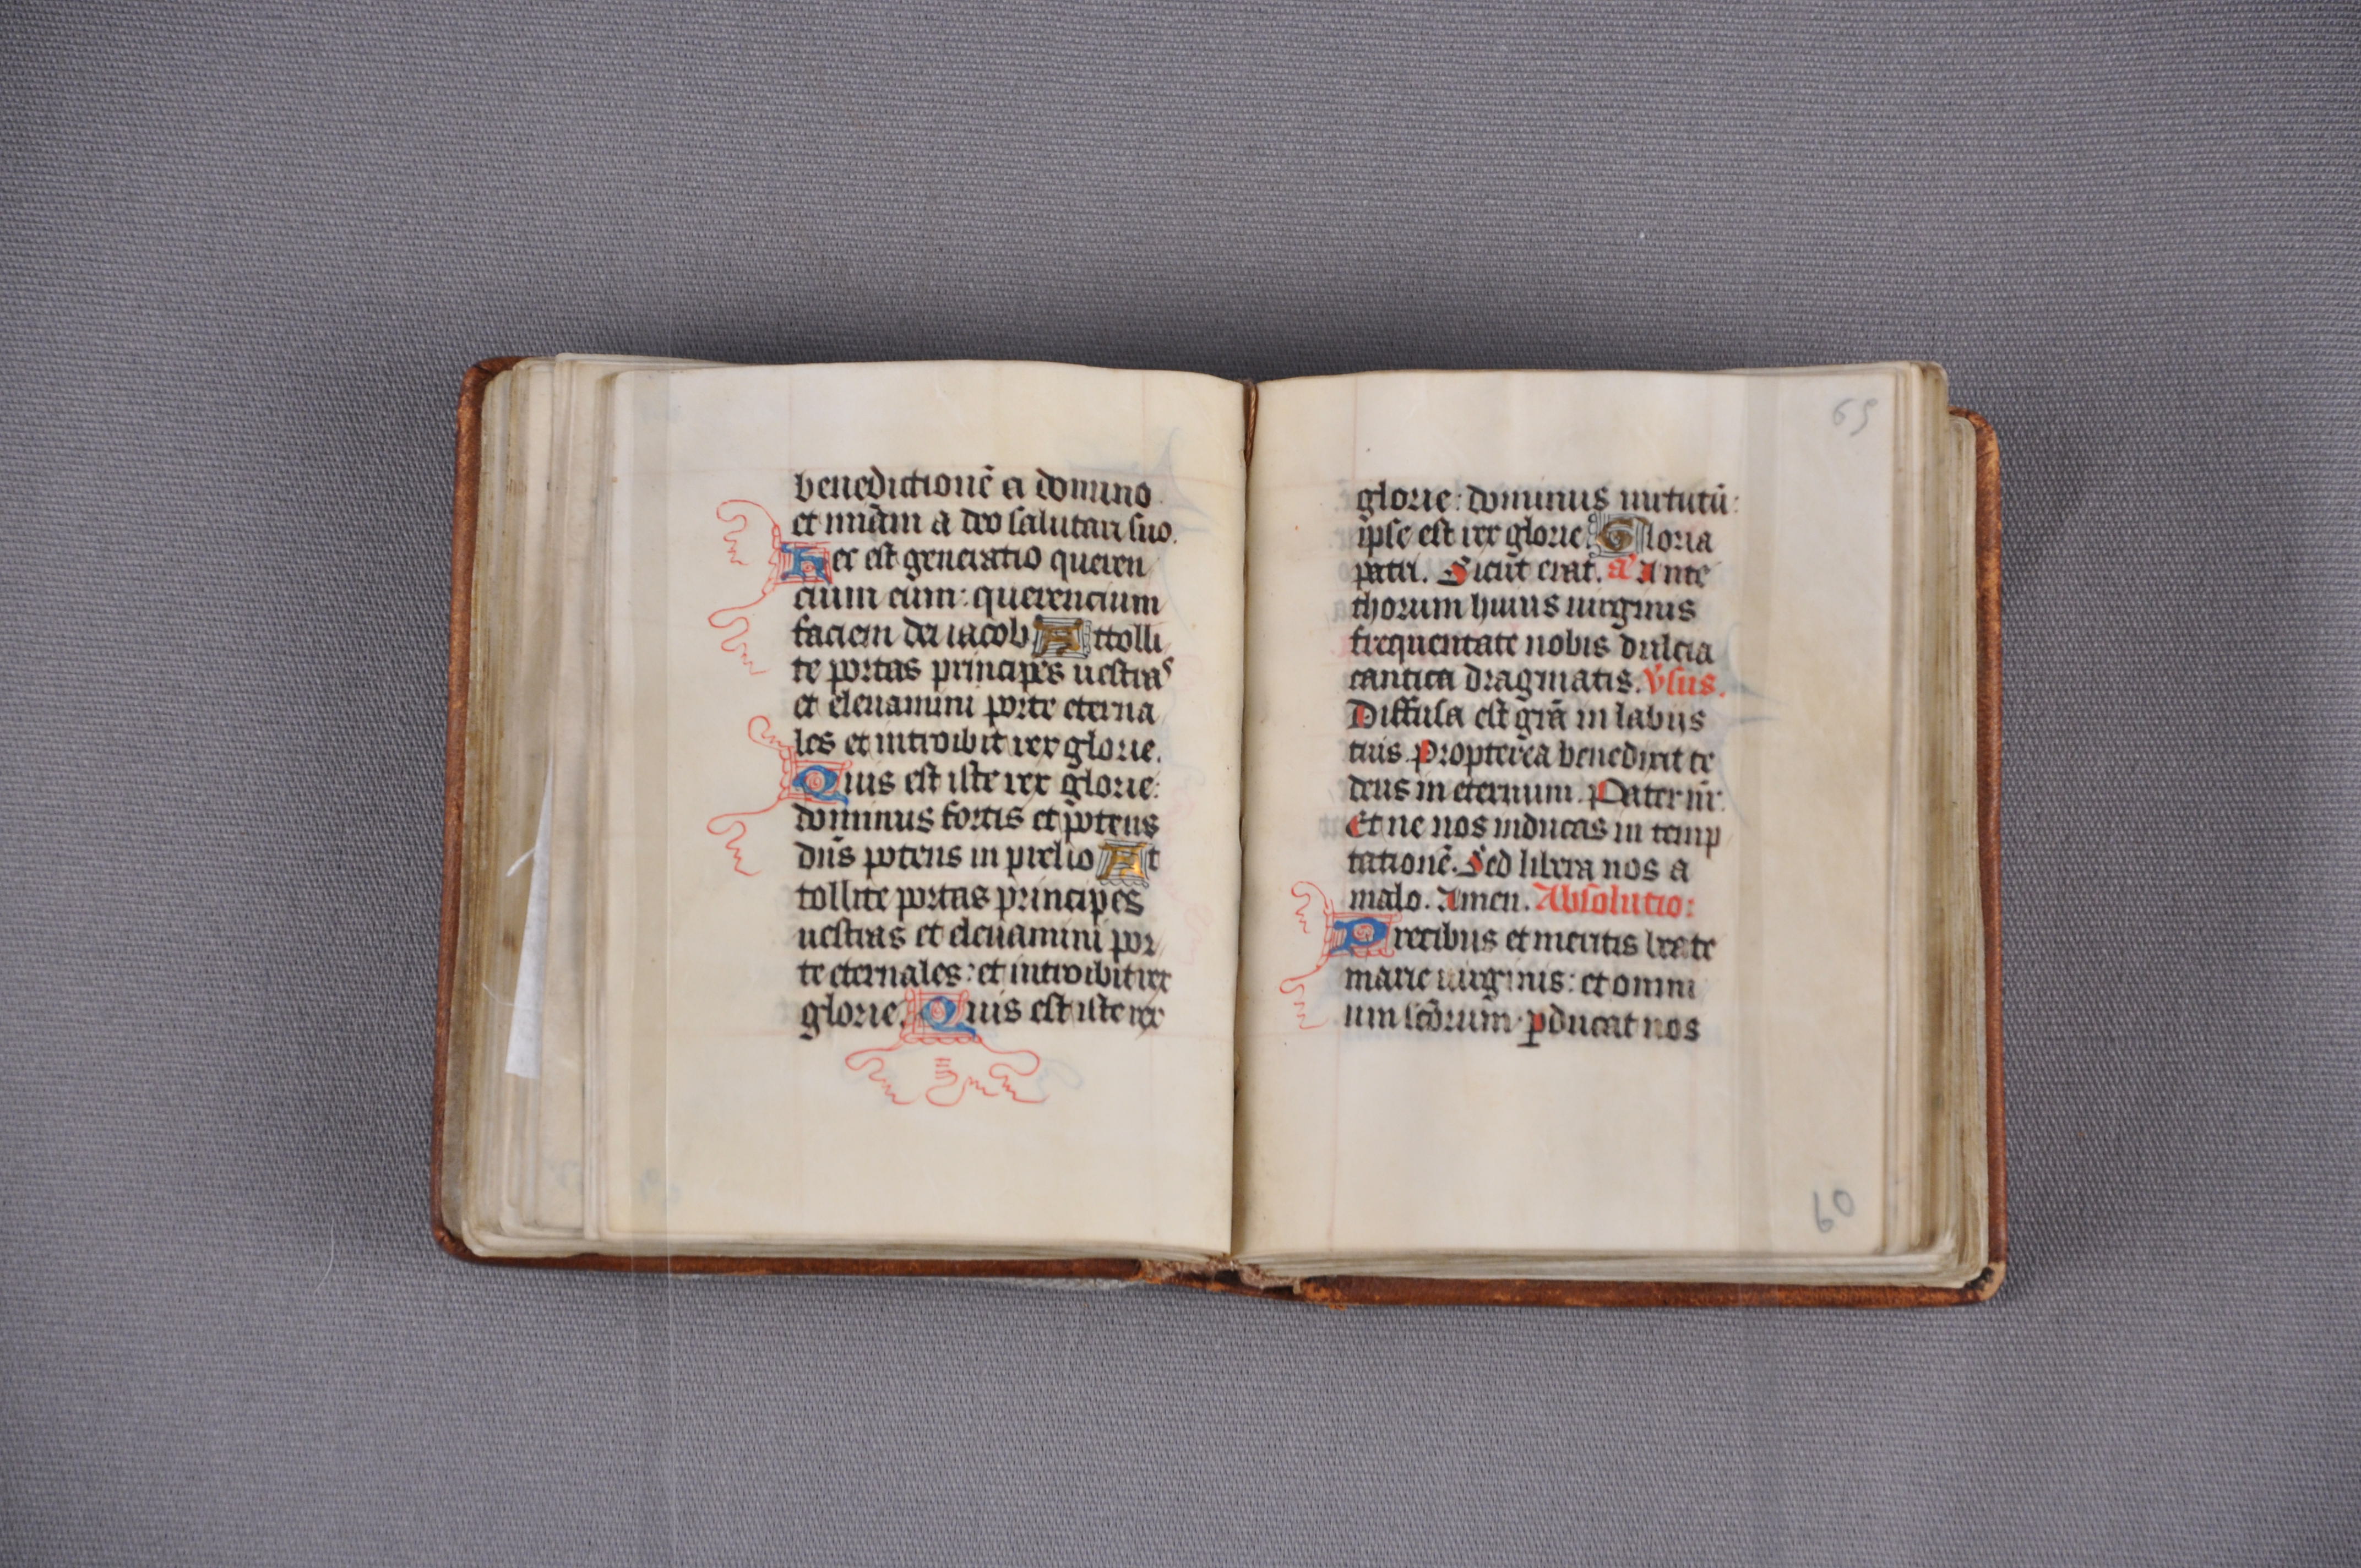 benedictionē a domino
et miām a deo salutari suo.
Hec est generatio queren
cium eum: querencium
faciem dei iacob Attolli
te portas principes uestras
et eleuamini porte eterna
les et introibit rex glorie.
Quis est iste rex glorie:
dominus fortis et potens
dn̄s potens in prelio At
tollite portas principes
uestras et eleuamini por
te eternales: et introibit rex
glorie. Quis est iste rex
65
glorie: dominus uirtutū:
ipse est rex glorie. Gloria
patri. Sicut erat. a' Ante
thorum huius uirginis
frequentate nobis dulcia
cantica dragmatis. v̄sus.
Diffusa est grā in labiis
tuis. Propterea benedixit te
deus in eternum. Pater nr̄.
Et ne nos inducas in temp
tationē. Sed libera nos a
malo. Amen. Absolutio:
Precibus et meritis beate
marie uirginis: et omni
um scōrum ꝑducat nos
60